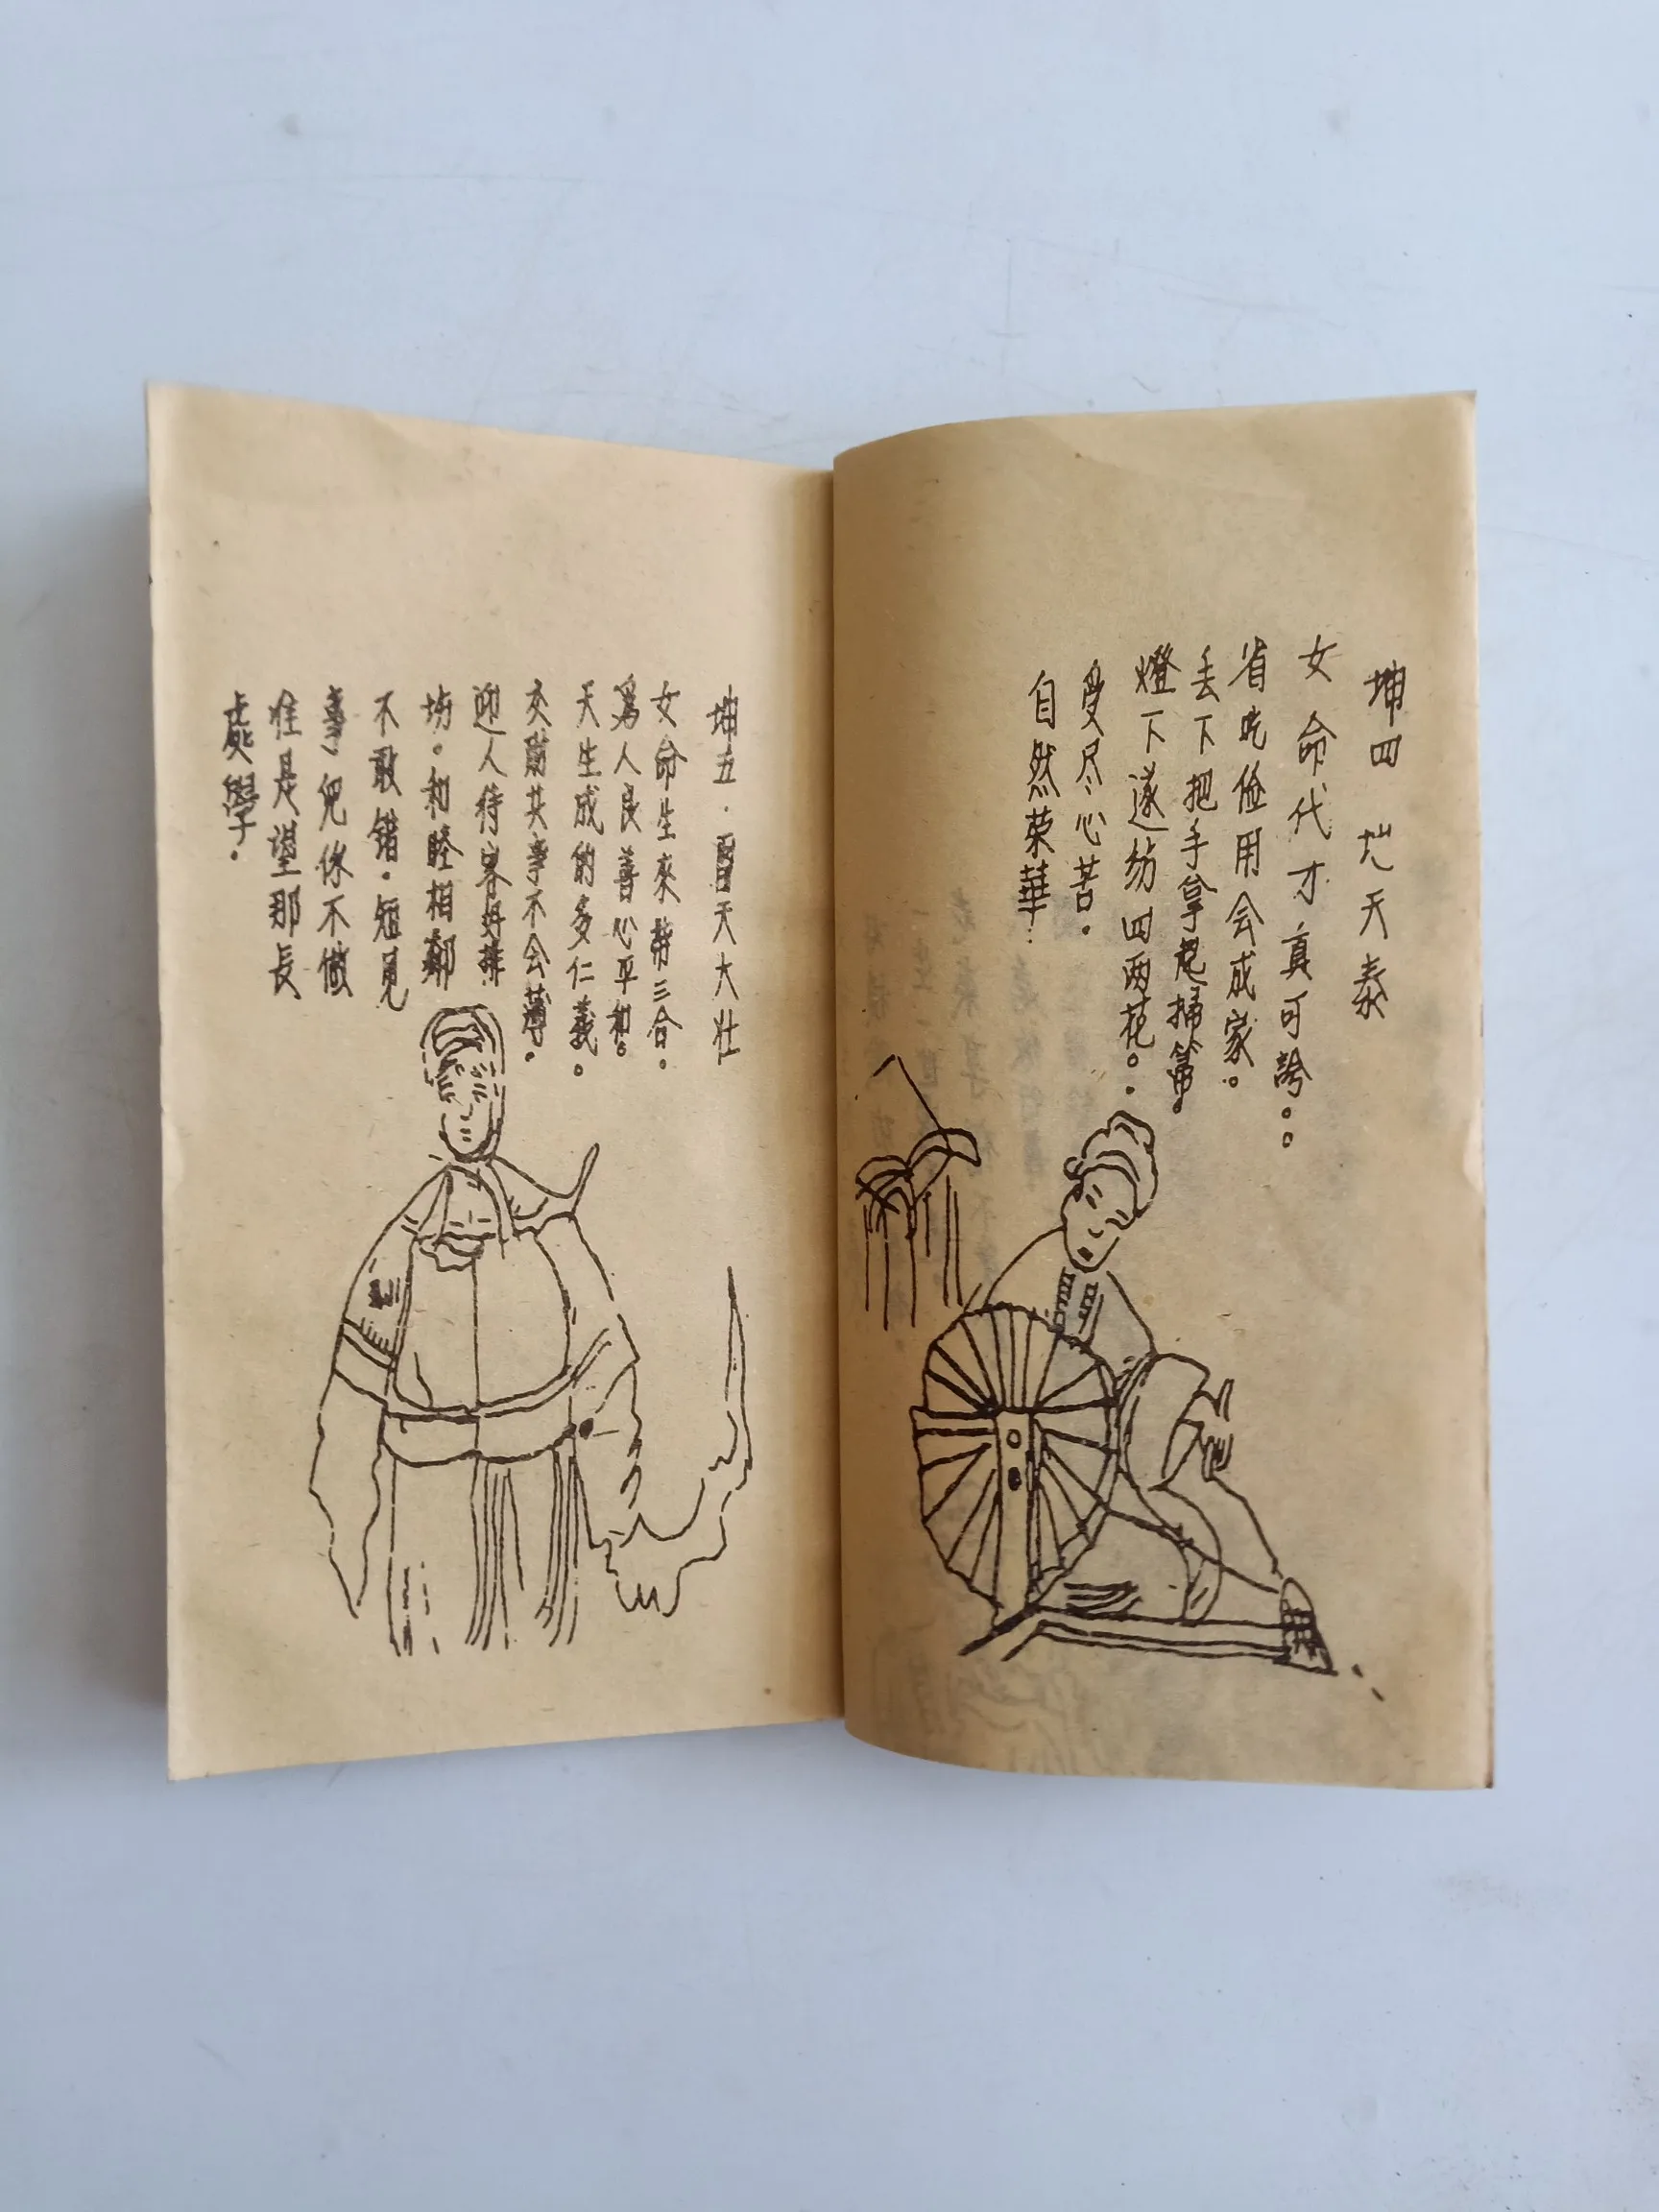 坤四 地天泰
女命代才真可誇。。
省吃俭用会成家。
丢下把手拿起掃箒。
燈下遂纺四两花。.
受尽心苦.
自然荣華.
坤五.雷天大壮
女命生來帶三合。
爲人良善心平和。
天生成的多仁義。
交財共事不会薄.
迎人待客好排
场.和睦相鄰
不敢錯.短見
事兒你不做
惟是望那長
處學.